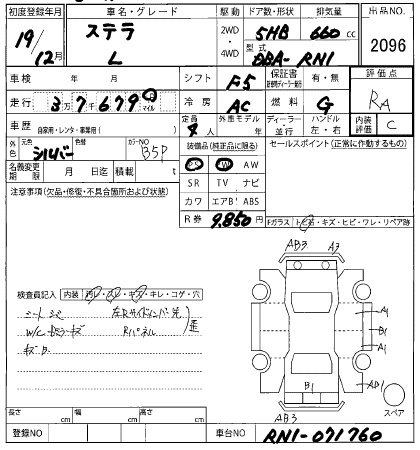 初度登録年月 車名・グレード 駆動 ドア数・形状 排気量 出品NO.
19/12月 ステラ L 2WD・4WD 5HB 660cc 2096
型式 DBA-RN1
車検 年 月 シフト F5 保証書 有・無 評価点
走行 3万7千679 km マイル 冷房 AC 燃料 G RA
車歴 自家用・レンタ・事業用( ) 定員 4人 外車モデル 年 ディーラー・並行 ハンドル 左・右 内装評価 C
外色 元色 シルバー 色替 カラーNO B5P 装備品(純正品に限る) セールスポイント(正常に作動するもの)
名義変更期限 月 日迄 積載 t PS PW AW
注意事項(欠品・修復・不具合箇所および状態) SR TV ナビ
カワ エアB' ABS
R券 9,850円 Fガラス トビ石・キズ・ヒビ・ワレ・リペア跡
AB3 A3
検査員記入 内装 汚レ・スレ・キズ・キレ・コゲ・穴
シートシミ 左Rサイドインパー先 歪
Rパネル
キズ B.
A1
B1
A1
B1
AD1
AB3
スペア
長さ cm 幅 cm 高さ cm
登録NO 車台NO RN1-071760